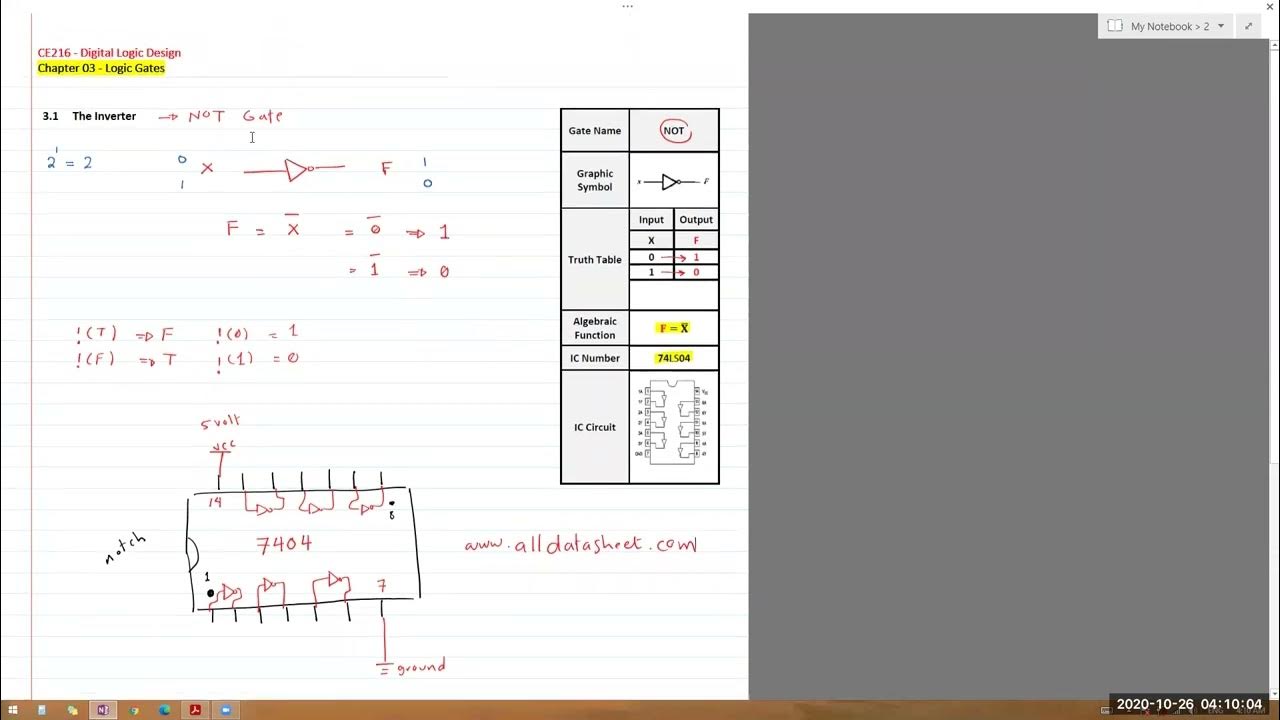 My Notebook > 2
CE216 - Digital Logic Design
Chapter 03 - Logic Gates
3.1 The Inverter → NOT Gate
2¹ = 2
0 X F 1
1 0
F = X̅ = 0̅ ⇒ 1
= 1̅ ⇒ 0
!(T) ⇒ F !(0) = 1
!(F) ⇒ T !(1) = 0
5 volt
VCC
14
8
7404
notch
1
7
ground
www.alldatasheet.com
Gate Name NOT
Graphic Symbol x F
Truth Table
Input Output
X F
0 → 1
1 → 0
Algebraic Function F = X̅
IC Number 74LS04
IC Circuit
2020-10-26 04:10:04